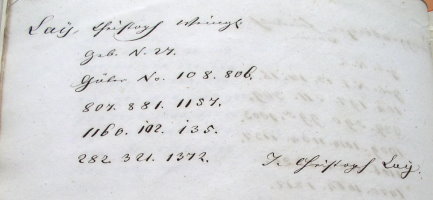 Lay, Christoph
Geb. N. 27.
Güter No. 108. 806.
807. 881. 1157.
1160. 102. 135.
282. 321. 1372. Christoph Lay.